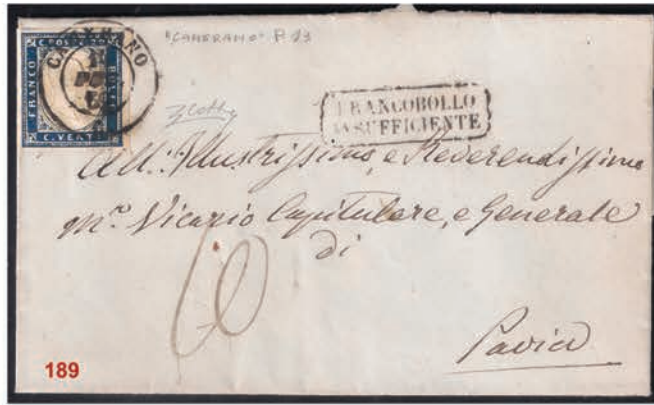 "CAMERANO" P. 13
C. POSTE 20
FRANCO
BOLLO
C. VENTI
CAMERANO
FRANCOBOLLO
INSUFFICIENTE
All'Illustrissimo, e Reverendissimo
Mo. Vicario Capitulare, e Generale
di
Pavia
189